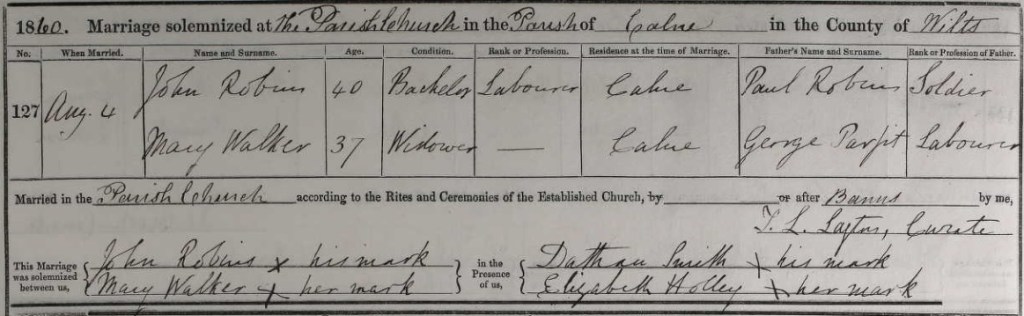 1860. Marriage solemnized at the Parish Church in the Parish of Calne in the County of Wilts
No. When Married. Name and Surname. Age. Condition. Rank or Profession. Residence at the time of Marriage. Father's Name and Surname. Rank or Profession of Father.
127 Aug. 4 John Robins 40 Bachelor Labourer Calne Paul Robins Soldier
Mary Walker 37 Widower — Calne George Parfit Labourer
Married in the Parish Church according to the Rites and Ceremonies of the Established Church, by or after Banns by me,
T. L. Curate
This Marriage was solemnized between us, John Robins x his mark in the Presence of us, Dathan Smith x his mark
Mary Walker x her mark Elizabeth Holley x her mark